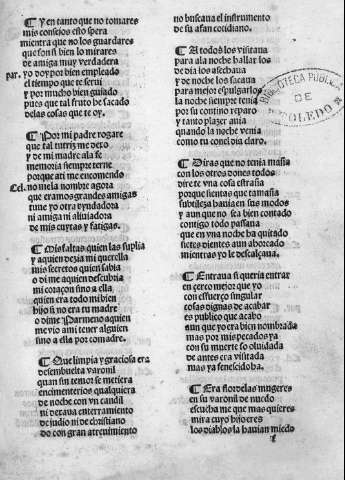 ¶ Y en tanto que no tomares
mis consejos esto spera
mientra que no los guardares
que son si bien lo mirares
de amiga muy verdadera
par. yo doy por bien empleado
el tiempo que te serui
y por mucho bien guiado
pues que tal fruto he sacado
delas cosas que te oy.
¶ Por mi padre rogare
que tal nutriz me dexo
y de mi madre ala fe
memoria siempre terne
porque ati me encomendo
Cel. no me la nombre agora
que eramos grandes amigas
tuue yo otra ayudadora
ni amiga ni aliuiadora
de mis cuytas y fatigas.
¶ Mis faltas quien las suplia
y a quien dezia mi querella
mis secretos quien sabia
o di me a quien descubria
mi coraçon sino a ella
quien era todo mi bien
hijo si no era tu madre
o dime Parmeno aquien
me vio ami tener alguien
sino a ella por comadre.
¶ Que limpia y graciosa era
desembuelta varonil
quan sin temor se metiera
en cimenterios qualquiera
de noche con vn candil
ni dexaua enterramiento
de judio ni de christiano
do con gran atreuimiento
no buscaua el instrumento
de su afan cotidiano.
¶ A todos los visitaua
para ala noche hallar los
de dia los asechaua
y de noche los sacaua
para mejor espulgarlos
la noche siempre tenia
por su contino reparo
y tanto plazer auia
quando la noche venia
como tu con el dia claro.
¶ Diras que no tenia maña
con los otros dones todos
dire te vna cosa estraña
porque sientas que tamaña
subtileza hauia en sus modos
y aun que no sea bien contado
contigo todo passaua
que en vna noche ha quitado
siete dientes a un ahorcado
mientras yo le descalçaua.
¶ Entraua si queria entrar
en cerco mejor que yo
con esfuerço singular
cosas dignas de acabar
de publico que acabo
aun que yo era bien nombrada
mas por mis pecados ya
con su muerte so oluidada
de antes era visitada
mas ya fenescido ha.
¶ Era flor delas mugeres
en su varonil de nuedo
escucha me que mas quieres
mira cuyo hijo eres
los diablos la hauian miedo
BIBLIOTECA PUBLICA
DE
TOLEDO